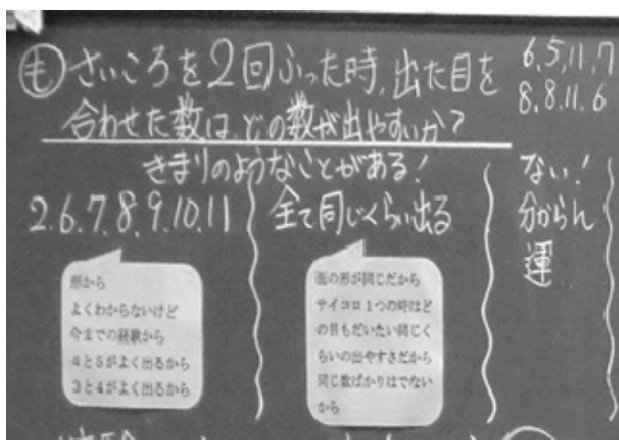 も さいころを2回ふった時、出た目を
合わせた数は、どの数が出やすいか?
6.5.11.7
8.8.11.6
きまりのようなことがある!
2.6.7.8.9.10.11
全て同じくらい出る
ない!
分からん
運
形から
よくわからないけど
今までの経験から
4と5がよく出るから
3と4がよく出るから
面の形が同じだから
サイコロ1つの時はど
の目もだいたい同じく
らいの出やすさだから
同じ数ばかりはでない
から